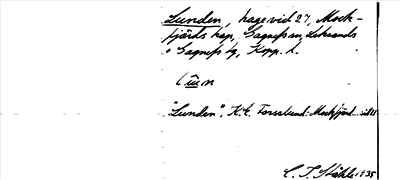 Lunden, hage vid 27, Mock-
fjärds kap, Gagnefs sn, Leksands
o Gagnefs tg, Kopp. l.
"Lunden", K.E. Forsslund: Mockfjärd
C. J. Ståhle 1935